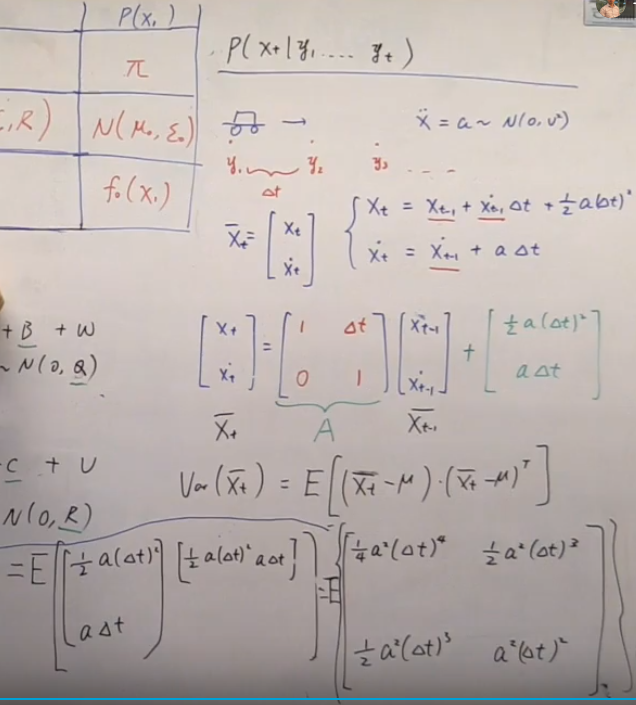 P(x₁)
π
, R) N(μ₀, Σ₀)
f₀(x₁)
P(x_t | y₁ .... y_t)
ẍ = a ~ N(0, υ²)
y₁ y₂ y₃ - - -
Δt
X̄_t = [x_t ẋ_t] { x_t = x_{t-1} + ẋ_{t-1} Δt + ½ a(Δt)²
ẋ_t = ẋ_{t-1} + a Δt
+ B + W
~ N(0, Q)
[x_t ẋ_t] = [1 Δt 0 1] [x_{t-1} ẋ_{t-1}] + [½ a(Δt)² a Δt]
X̄_t A X̄_{t-1}
C + υ
N(0, R)
Var(X̄_t) = E[(X̄_t - μ)·(X̄_t - μ)ᵀ]
= E[[½ a(Δt)² a Δt] [½ a(Δt)² a Δt]] = E{[¼ a²(Δt)⁴ ½ a²(Δt)³ ½ a²(Δt)³ a²(Δt)²]}